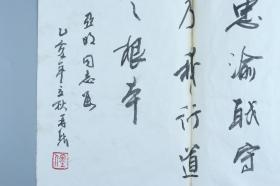 忠渝職守
乃我行道
之根本
亚明同志属
乙亥年立秋